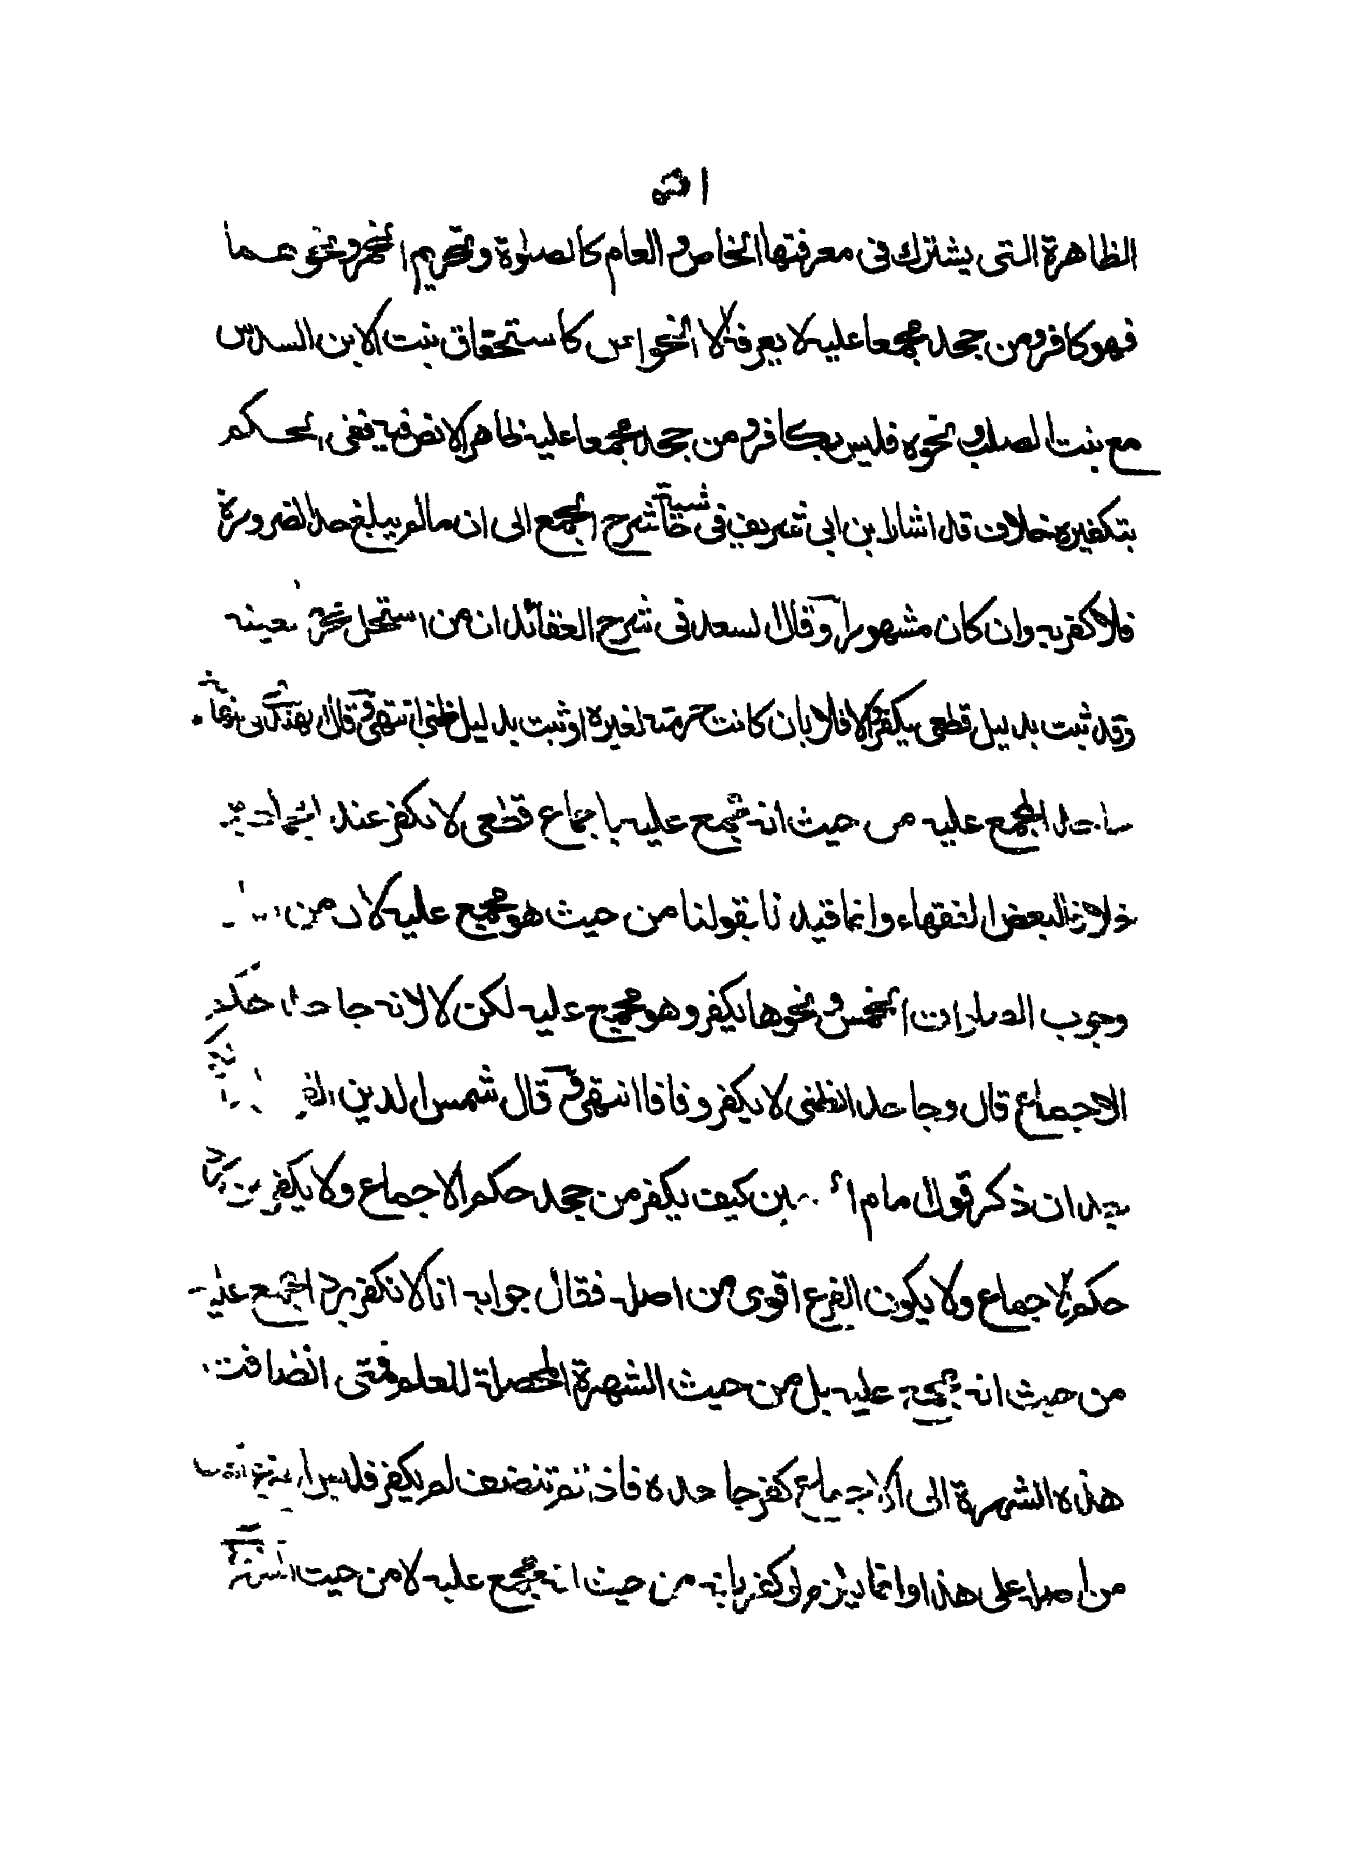 الظاهرة التى يشترك فى معرفتها الخاص والعام كالصلوة وتحريم الخمر ونحوهما
فهو كافر ومن جحد مجمعا عليه لا يعرفه الا الخواص كاستحقاق بنت الابن السدس
مع بنت الصلب ونحوه فليس بكافر ومن جحد مجمعا عليه ظاهرا لا نص فيه ففى الحكم
بتكفيره خلاف قال اشار ابن ابى شريف فى حاشية شرح الجمع الى ان ما لم يبلغ حد الضرورة
فلا كفر به وان كان مشهورا وقال السعد فى شرح العقائد ان من استحل محرما بعينه
وقد ثبت بدليل قطعى يكفر والا فلا بان كانت حرمته لغيره او ثبت بدليل ظنى انتهى وقال
جاحد المجمع عليه من حيث انه مجمع عليه باجماع قطعى لا نكفر عند
خلافا لبعض الفقهاء وانما قيدنا بقولنا من حيث هو مجمع عليه لان من
وجوب الصلوات الخمس ونحوها يكفر وهو مجمع عليه لكن لا لانه جاحد حكم
الاجماع قال وجاحد الظنى لا يكفر وفاقا انتهى وقال شمس الدين
بعد ان ذكر قول امام كيف يكفر من جحد حكم الاجماع ولا يكفر من
حكم الاجماع ولا يكون الفرع اقوى من اصله فقال جوابه انا لا نكفر برد المجمع عليه
من حيث انه مجمع عليه بل من حيث الشهرة المحصلة للعلم فمتى انضافت
هذه الشهرة الى الاجماع كفر جاحده فاذا لم تنضف لم يكفر فليس
من اصله على هذا وانما يلزم لو كفرنا به من حيث انه مجمع عليه لا من حيث